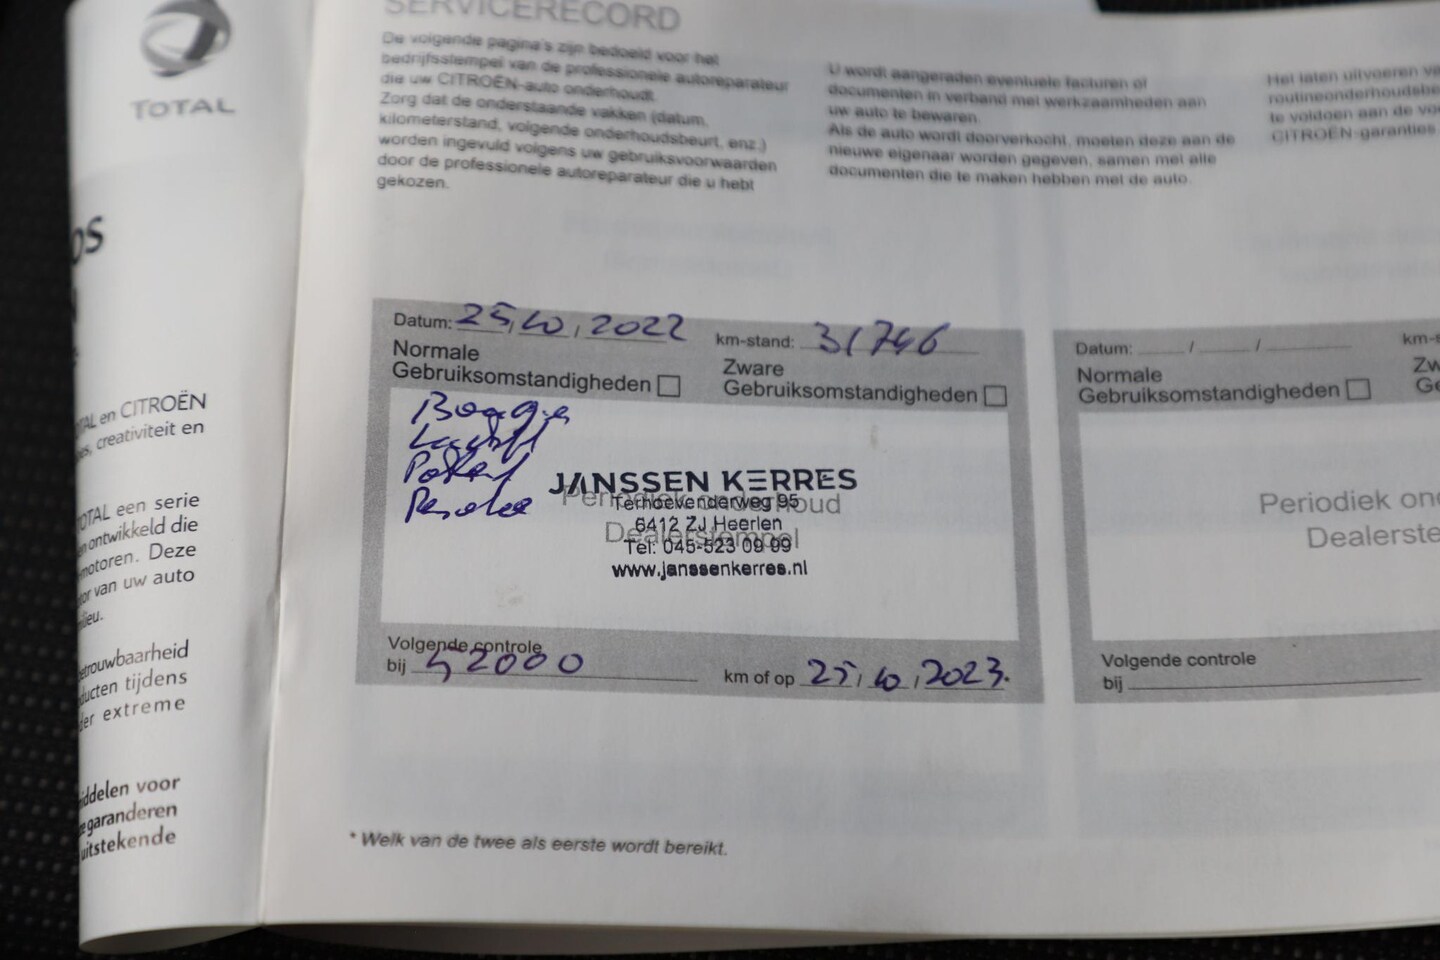 TOTAL
OS
TAL en CITROËN
es, creativiteit en
OTAL een serie
ontwikkeld die
motoren. Deze
or van uw auto
ilieu.
etrouwbaarheid
ducten tijdens
der extreme
iddelen voor
garanderen
uitstekende
SERVICERECORD
De volgende pagina's zijn bedoeld voor het
bedrijfsstempel van de professionele autoreparateur
die uw CITROËN-auto onderhoudt.
Zorg dat de onderstaande vakken (datum,
kilometerstand, volgende onderhoudsbeurt, enz.)
worden ingevuld volgens uw gebruiksvoorwaarden
door de professionele autoreparateur die u hebt
gekozen.
U wordt aangeraden eventuele facturen of
documenten in verband met werkzaamheden aan
uw auto te bewaren.
Als de auto wordt doorverkocht, moeten deze aan de
nieuwe eigenaar worden gegeven, samen met alle
documenten die te maken hebben met de auto.
Het laten uitvoeren va
routineonderhoudsbe
te voldoen aan de vo
CITROËN-garanties.
Datum: 25, 10, 2022 km-stand: 31746
Normale
Gebruiksomstandigheden
Zware
Gebruiksomstandigheden
JANSSEN KERRES
Periodiek onderhoud
Terhoevenderweg 95
6412 ZJ Heerlen
Dealerstempel
Tel: 045-523 09 99
www.janssenkerres.nl
Volgende controle
bij 52000 km of op 25, 10, 2023.
Datum: / /
km-s
Normale
Gebruiksomstandigheden
Zw
Ge
Periodiek ond
Dealerste
Volgende controle
bij
* Welk van de twee als eerste wordt bereikt.